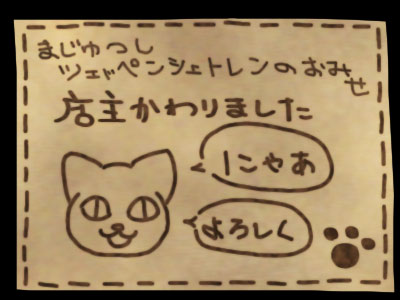 まじゅつし
ツェペンシェトレンのおみせ
店主かわりました
にゃあ
よろしく